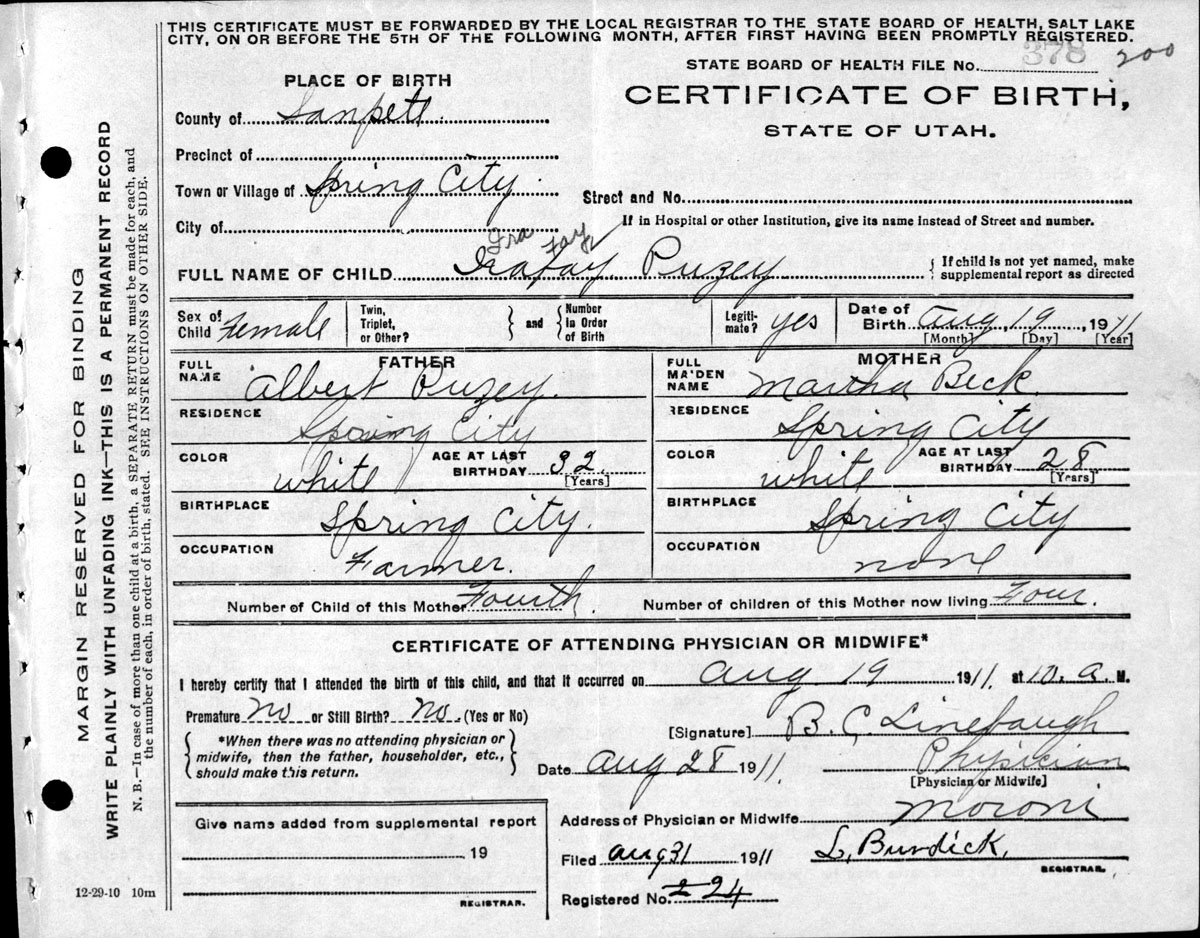 THIS CERTIFICATE MUST BE FORWARDED BY THE LOCAL REGISTRAR TO THE STATE BOARD OF HEALTH, SALT LAKE
CITY, ON OR BEFORE THE 5TH OF THE FOLLOWING MONTH, AFTER FIRST HAVING BEEN PROMPTLY REGISTERED.
378 200
STATE BOARD OF HEALTH FILE No.
PLACE OF BIRTH
CERTIFICATE OF BIRTH,
STATE OF UTAH.
County of Sanpete
Precinct of
Town or Village of Spring City.
Street and No.
City of
If in Hospital or other Institution, give its name instead of Street and number.
Ira Fay
FULL NAME OF CHILD Irafay Puzey
{ If child is not yet named, make
supplemental report as directed
Sex of Child Female
Twin, Triplet, or Other? } and { Number in Order of Birth
Legiti-mate? yes
Date of Birth Aug, 19, 1911
[Month] [Day] [Year]
FATHER
MOTHER
FULL NAME Albert Puzey.
FULL MAIDEN NAME Martha Beck.
RESIDENCE Spring City
RESIDENCE Spring City
COLOR white AGE AT LAST BIRTHDAY 32 [Years]
COLOR white AGE AT LAST BIRTHDAY 28 [Years]
BIRTHPLACE Spring City.
BIRTHPLACE Spring City
OCCUPATION Farmer.
OCCUPATION none
Number of Child of this Mother Fourth.
Number of children of this Mother now living Four.
CERTIFICATE OF ATTENDING PHYSICIAN OR MIDWIFE*
I hereby certify that I attended the birth of this child, and that it occurred on Aug 19 1911. at 10. a. M.
Premature No or Still Birth? No. (Yes or No)
[Signature] B. C. Linebaugh
{ *When there was no attending physician or
midwife, then the father, householder, etc.,
should make this return. }
Date Aug 28 1911.
Physician
[Physician or Midwife]
Give name added from supplemental report
19
REGISTRAR.
Address of Physician or Midwife Moroni
Filed Aug 31 1911
L. Burdick,
REGISTRAR.
Registered No. 224
12-29-10 10m
MARGIN RESERVED FOR BINDING
WRITE PLAINLY WITH UNFADING INK—THIS IS A PERMANENT RECORD
N. B.—In case of more than one child at a birth, a SEPARATE RETURN must be made for each, and
the number of each, in order of birth, stated. SEE INSTRUCTIONS ON OTHER SIDE.